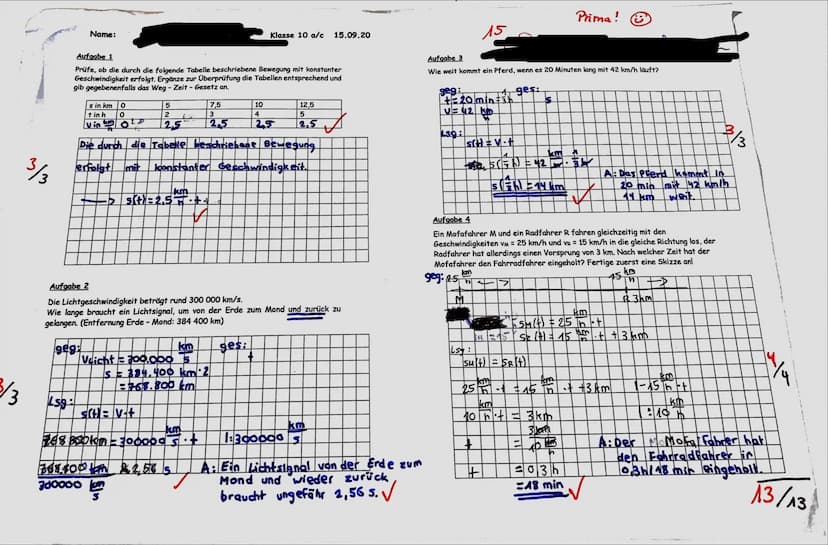 Name:
Klasse 10 a/c 15.09.20
Aufgabe 1
Prüfe, ob die durch die folgende Tabelle beschriebene Bewegung mit konstanter
Geschwindigkeit erfolgt. Ergänze zur Überprüfung die Tabellen entsprechend und
gib gegebenenfalls das Weg - Zeit - Gesetz an.
s in km 0 5 7,5 10 12,5
t in h 0 2 3 4 5
v in km/h 0 2,5 2,5 2,5 2,5
Die durch die Tabelle beschriebene Bewegung
erfolgt mit konstanter Geschwindigkeit.
3/3
→ s(t) = 2,5 km/h · t
Aufgabe 2
Die Lichtgeschwindigkeit beträgt rund 300 000 km/s.
Wie lange braucht ein Lichtsignal, um von der Erde zum Mond und zurück zu
gelangen. (Entfernung Erde - Mond: 384 400 km)
geg: ges:
VLicht = 300.000 km/s t
s = 384.400 km · 2
= 768.800 km
3/3
Lsg:
s(t) = v · t
768 800 km = 300000 km/s · t |: 300000 km/s
768.800 km ≈ 2,56 s
300000 km/s
A: Ein Lichtsignal von der Erde zum
Mond und wieder zurück
braucht ungefähr 2,56 s.
15 Prima!
Aufgabe 3
Wie weit kommt ein Pferd, wenn es 20 Minuten lang mit 42 km/h läuft?
geg: ges:
t = 20 min = 1/3 h s
v = 42 km/h
Lsg:
s(t) = v · t
s(1/3 h) = 42 km/h · 1/3 h
s(1/3 h) = 14 km
A: Das Pferd kommt in
20 min mit 42 km/h
14 km weit.
3/3
Aufgabe 4
Ein Mofafahrer M und ein Radfahrer R fahren gleichzeitig mit den
Geschwindigkeiten vM = 25 km/h und vR = 15 km/h in die gleiche Richtung los, der
Radfahrer hat allerdings einen Vorsprung von 3 km. Nach welcher Zeit hat der
Mofafahrer den Fahrradfahrer eingeholt? Fertige zuerst eine Skizze an!
geg: 25 km/h → 15 km/h →
M R 3km
sM(t) = 25 km/h · t
sR(t) = 15 km/h · t + 3 km
Lsg:
sM(t) = sR(t)
25 km/h · t = 15 km/h · t + 3 km |-15 km/h · t
10 km/h · t = 3 km |: 10 km/h
t = 3 km / 10 km/h
t = 0,3 h
= 18 min
A: Der Mofafahrer hat
den Fahrradfahrer in
0,3h/18 min eingeholt.
4/4
13/13